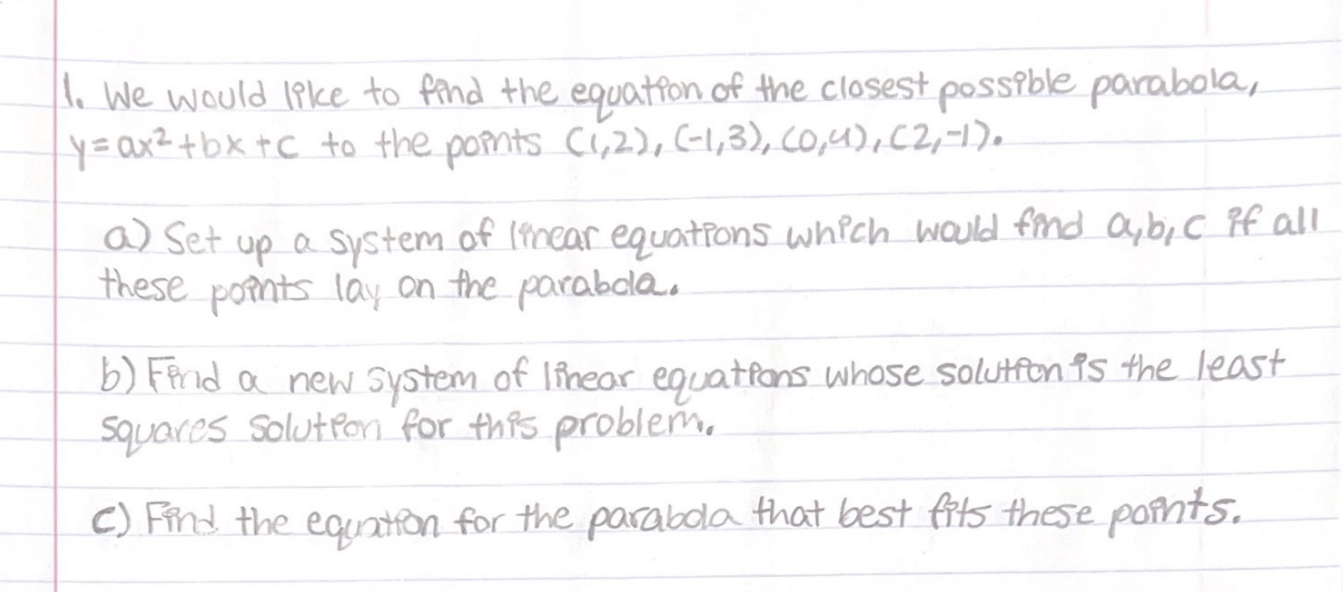 1. We would like to find the equation of the closest possible parabola,
y=ax²+bx+c to the points (1,2), (-1,3), (0,4), (2,-1).
a) Set up a system of linear equations which would find a,b,c if all
these points lay on the parabola.
b) Find a new system of linear equations whose solution is the least
squares solution for this problem.
c) Find the equation for the parabola that best fits these points.